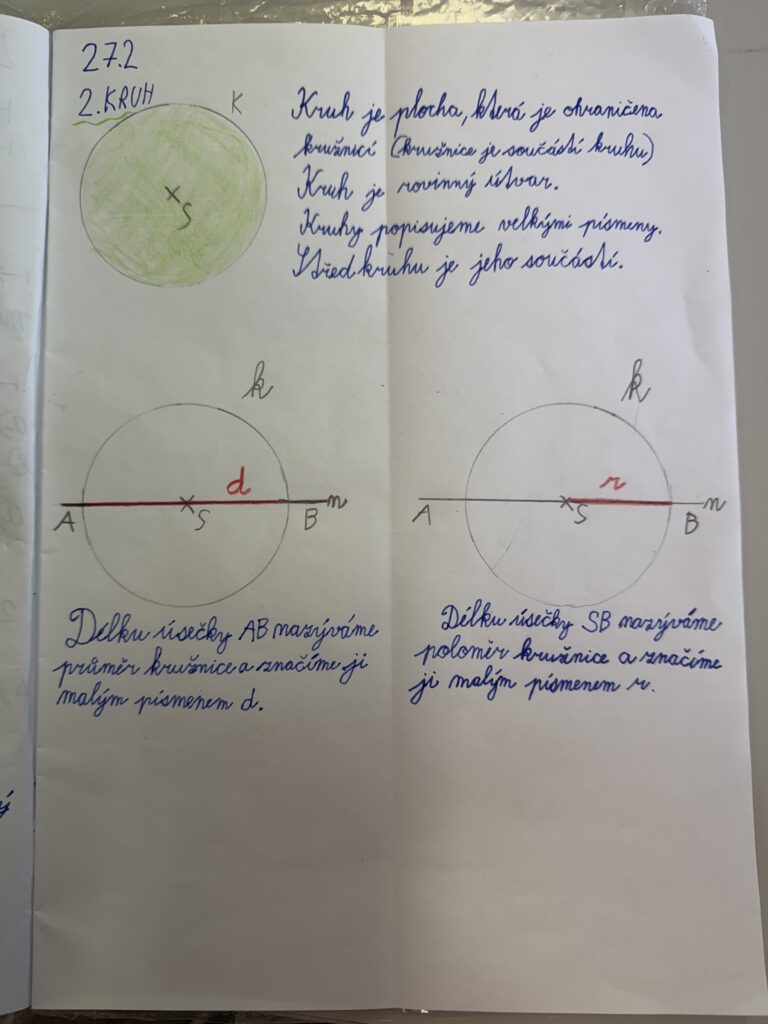 27.2
2. KRUH
K
S
Kruh je plocha, která je ohraničena
kružnicí (kružnice je součástí kruhu)
Kruh je rovinný útvar.
Kruhy popisujeme velkými písmeny.
Střed kruhu je jeho součástí.
k
d
A
S
B
n
Délku úsečky AB nazýváme
průměr kružnice a značíme ji
malým písmenem d.
k
r
A
S
B
n
Délku úsečky SB nazýváme
poloměr kružnice a značíme
ji malým písmenem r.